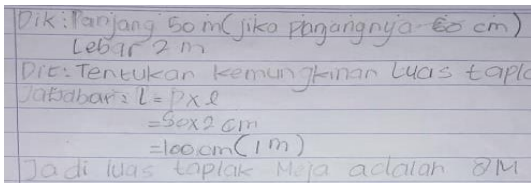 Dik: Panjang 50 m (jika panjangnya 60 cm)
Lebar 2 m
Dit: Tentukan kemungkinan Luas tapla
Jababar: L = P x l
= 50 x 2 cm
= 100 cm (1 m)
Jadi luas taplak Meja adalah 2M